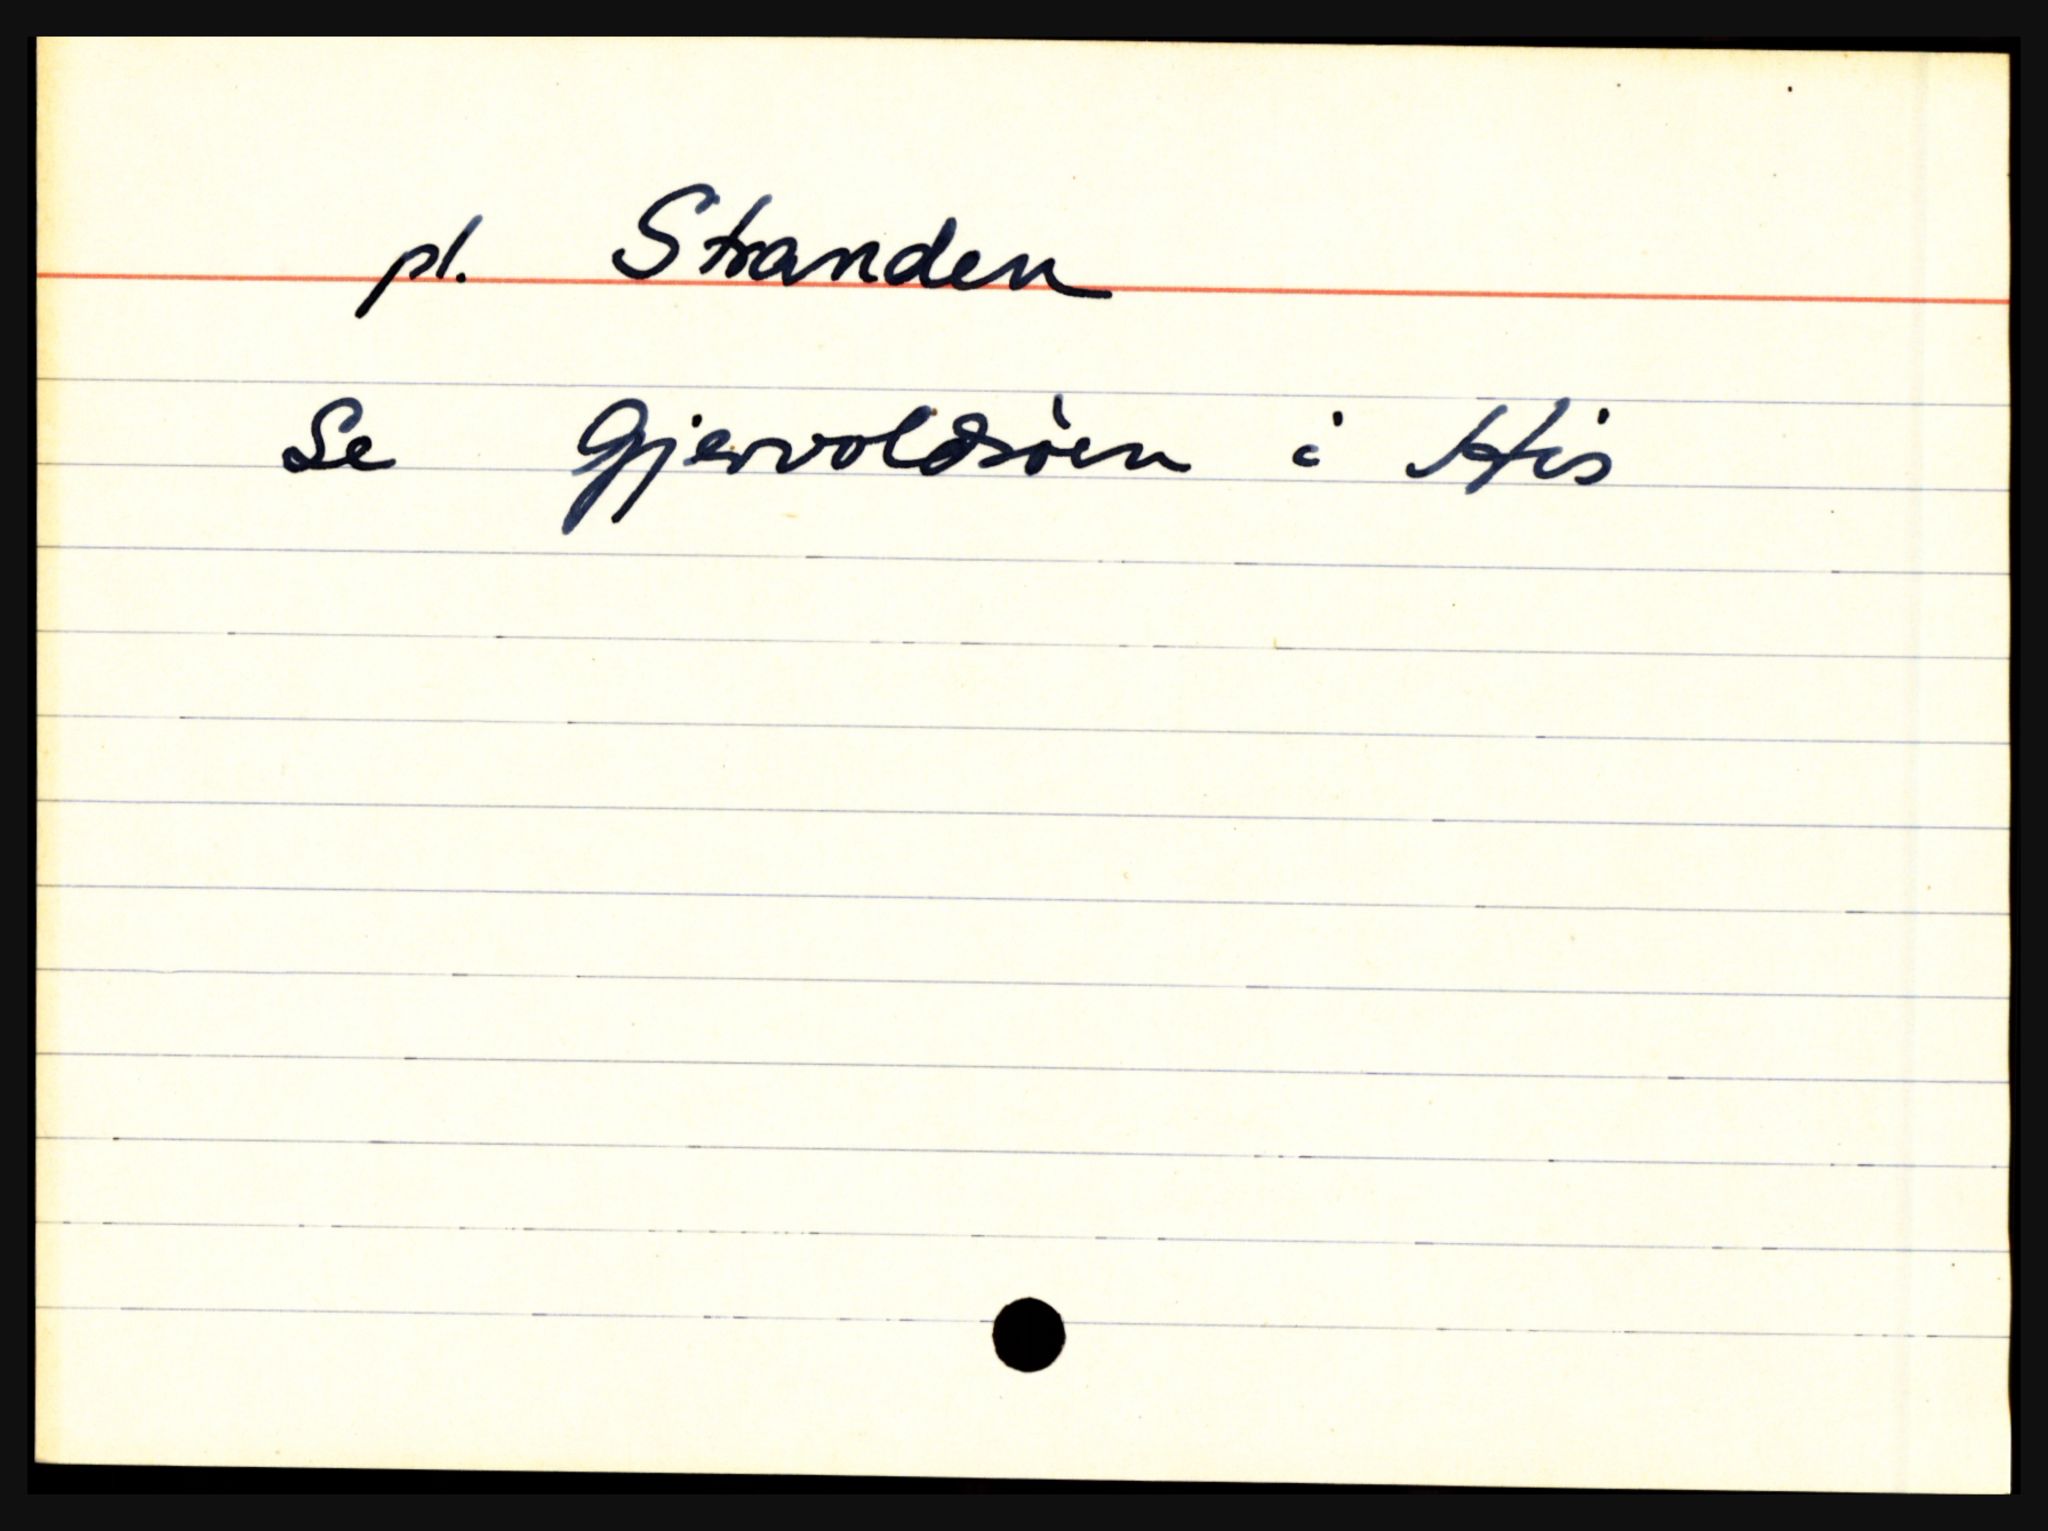 pl. Stranden
Se Gjervoldsöen i His